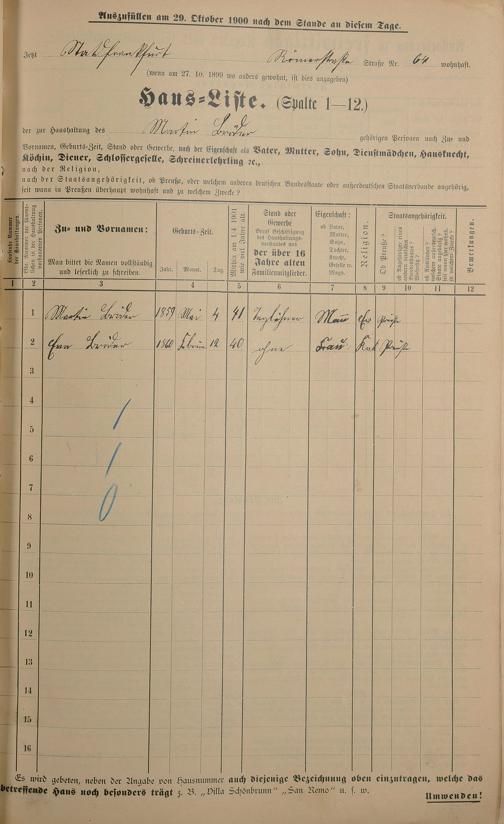 Auszufüllen am 29. Oktober 1900 nach dem Stande an diesem Tage.
Jetzt Frankfurt Römerstraße Straße Nr. 64 wohnhaft.
(wenn am 27. 10. 1899 wo anders gewohnt, ist dies anzugeben)
Haus-Liste. (Spalte 1—12.)
der zur Haushaltung des Martin Bruder gehörigen Personen nach Zu- und
Vornamen, Geburts-Zeit, Stand oder Gewerbe, nach der Eigenschaft als Vater, Mutter, Sohn, Dienstmädchen, Hausknecht,
Köchin, Diener, Schlossergeselle, Schreinerlehrling ec.,
nach der Religion,
nach der Staatsangehörigkeit, ob Preuße, oder welchem anderen deutschen Bundesstaate oder außerdeutschen Staatsverbande angehörig,
seit wann in Preußen überhaupt wohnhaft und zu welchem Zwecke?
Zu- und Vornamen:
Man bittet die Namen vollständig
und leserlich zu schreiben.
Geburts-Zeit.
Jahr. Monat. Tag.
Mithin am 1.4 1901
wie viel Jahre alt.
Stand oder
Gewerbe
der über 16
Jahre alten
Familienmitglieder.
Eigenschaft:
ob Vater,
Mutter,
Sohn,
Tochter,
Knecht,
Geselle u.
Magd.
Religion.
Staatsangehörigkeit.
Ob Preuße?
Bemerkungen.
1 2 3 4 5 6 7 8 9 10 11 12
1 Martin Bruder 1859 Mai 4 41 Taglöhner Mann Ev Preuße
2 Eva Bruder 1860 Februar 12 40 ohne Frau Kat Preuße
3
4
5
6
7
8
9
10
11
12
13
14
15
16
1
1
0
Es wird gebeten, neben der Angabe von Hausnummer auch diejenige Bezeichnung oben einzutragen, welche das
betreffende Haus noch besonders trägt z. B. „Villa Schönbrunn" „San Remo" u. s. w.
Umwenden!